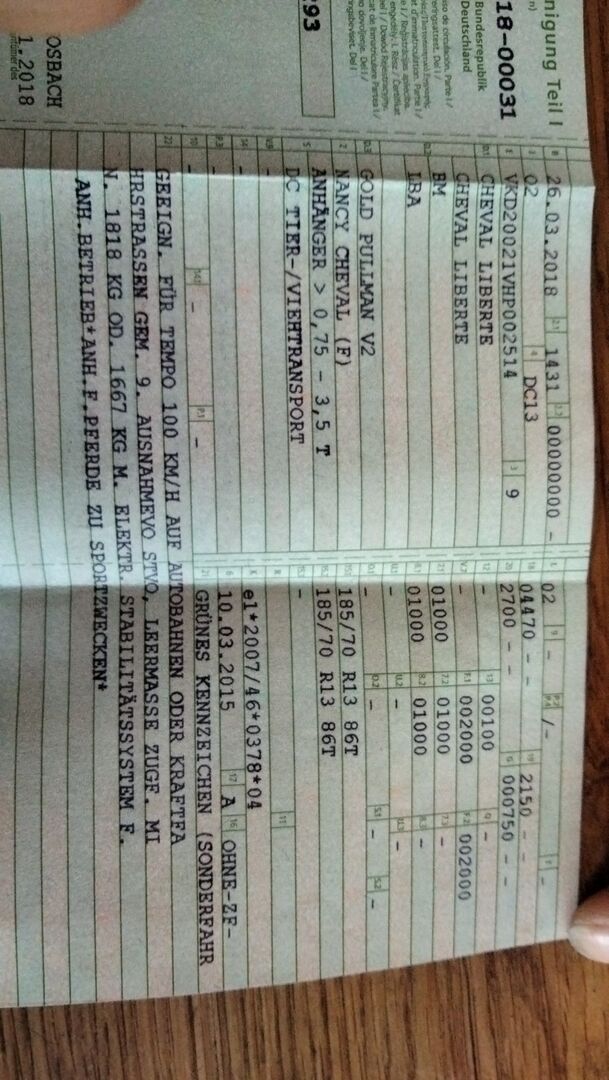 nigung Teil I
18-00031
Bundesrepublik
Deutschland
293
OSBACH
1.2018
B 26.03.2018 2.1 1431 2.2 00000000 -
J 02 4 DC13
E VKD20021VHP002514 3 9
D.1 CHEVAL LIBERTE
CHEVAL LIBERTE
D.2 BM
LBA
D.3 GOLD PULLMAN V2
2 NANCY CHEVAL (F)
5 ANHÄNGER > 0,75 - 3,5 T
DC TIER-/VIEHTRANSPORT
V.9 -
14 -
P.3 -
10 - 14.1 - P.1 -
L 02 9 - P.2 P.4 /- T -
18 04470 - - 19 2150 - -
20 2700 - - G 000750 - -
12 - 13 00100 Q -
V.7 - F.1 002000 F.2 002000
7.1 01000 7.2 01000 7.3 -
8.1 01000 8.2 01000 8.3 -
U.1 - U.2 - U.3 -
O.1 - O.2 - S.1 - S.2 -
15.1 185/70 R13 86T
15.2 185/70 R13 86T
15.3 -
R 11
K e1*2007/46*0378*04
6 10.03.2015 17 A 16 OHNE-ZF-
21 GRÜNES KENNZEICHEN (SONDERFAHR
22 GEEIGN. FÜR TEMPO 100 KM/H AUF AUTOBAHNEN ODER KRAFTFA
HRSTRASSEN GEM. 9. AUSNAHMEVO STVO, LEERMASSE ZUGF. MI
N. 1818 KG OD. 1667 KG M. ELEKTR. STABILITÄTSSYSTEM F.
ANH.BETRIEB*ANH.F.PFERDE ZU SPORTZWECKEN*